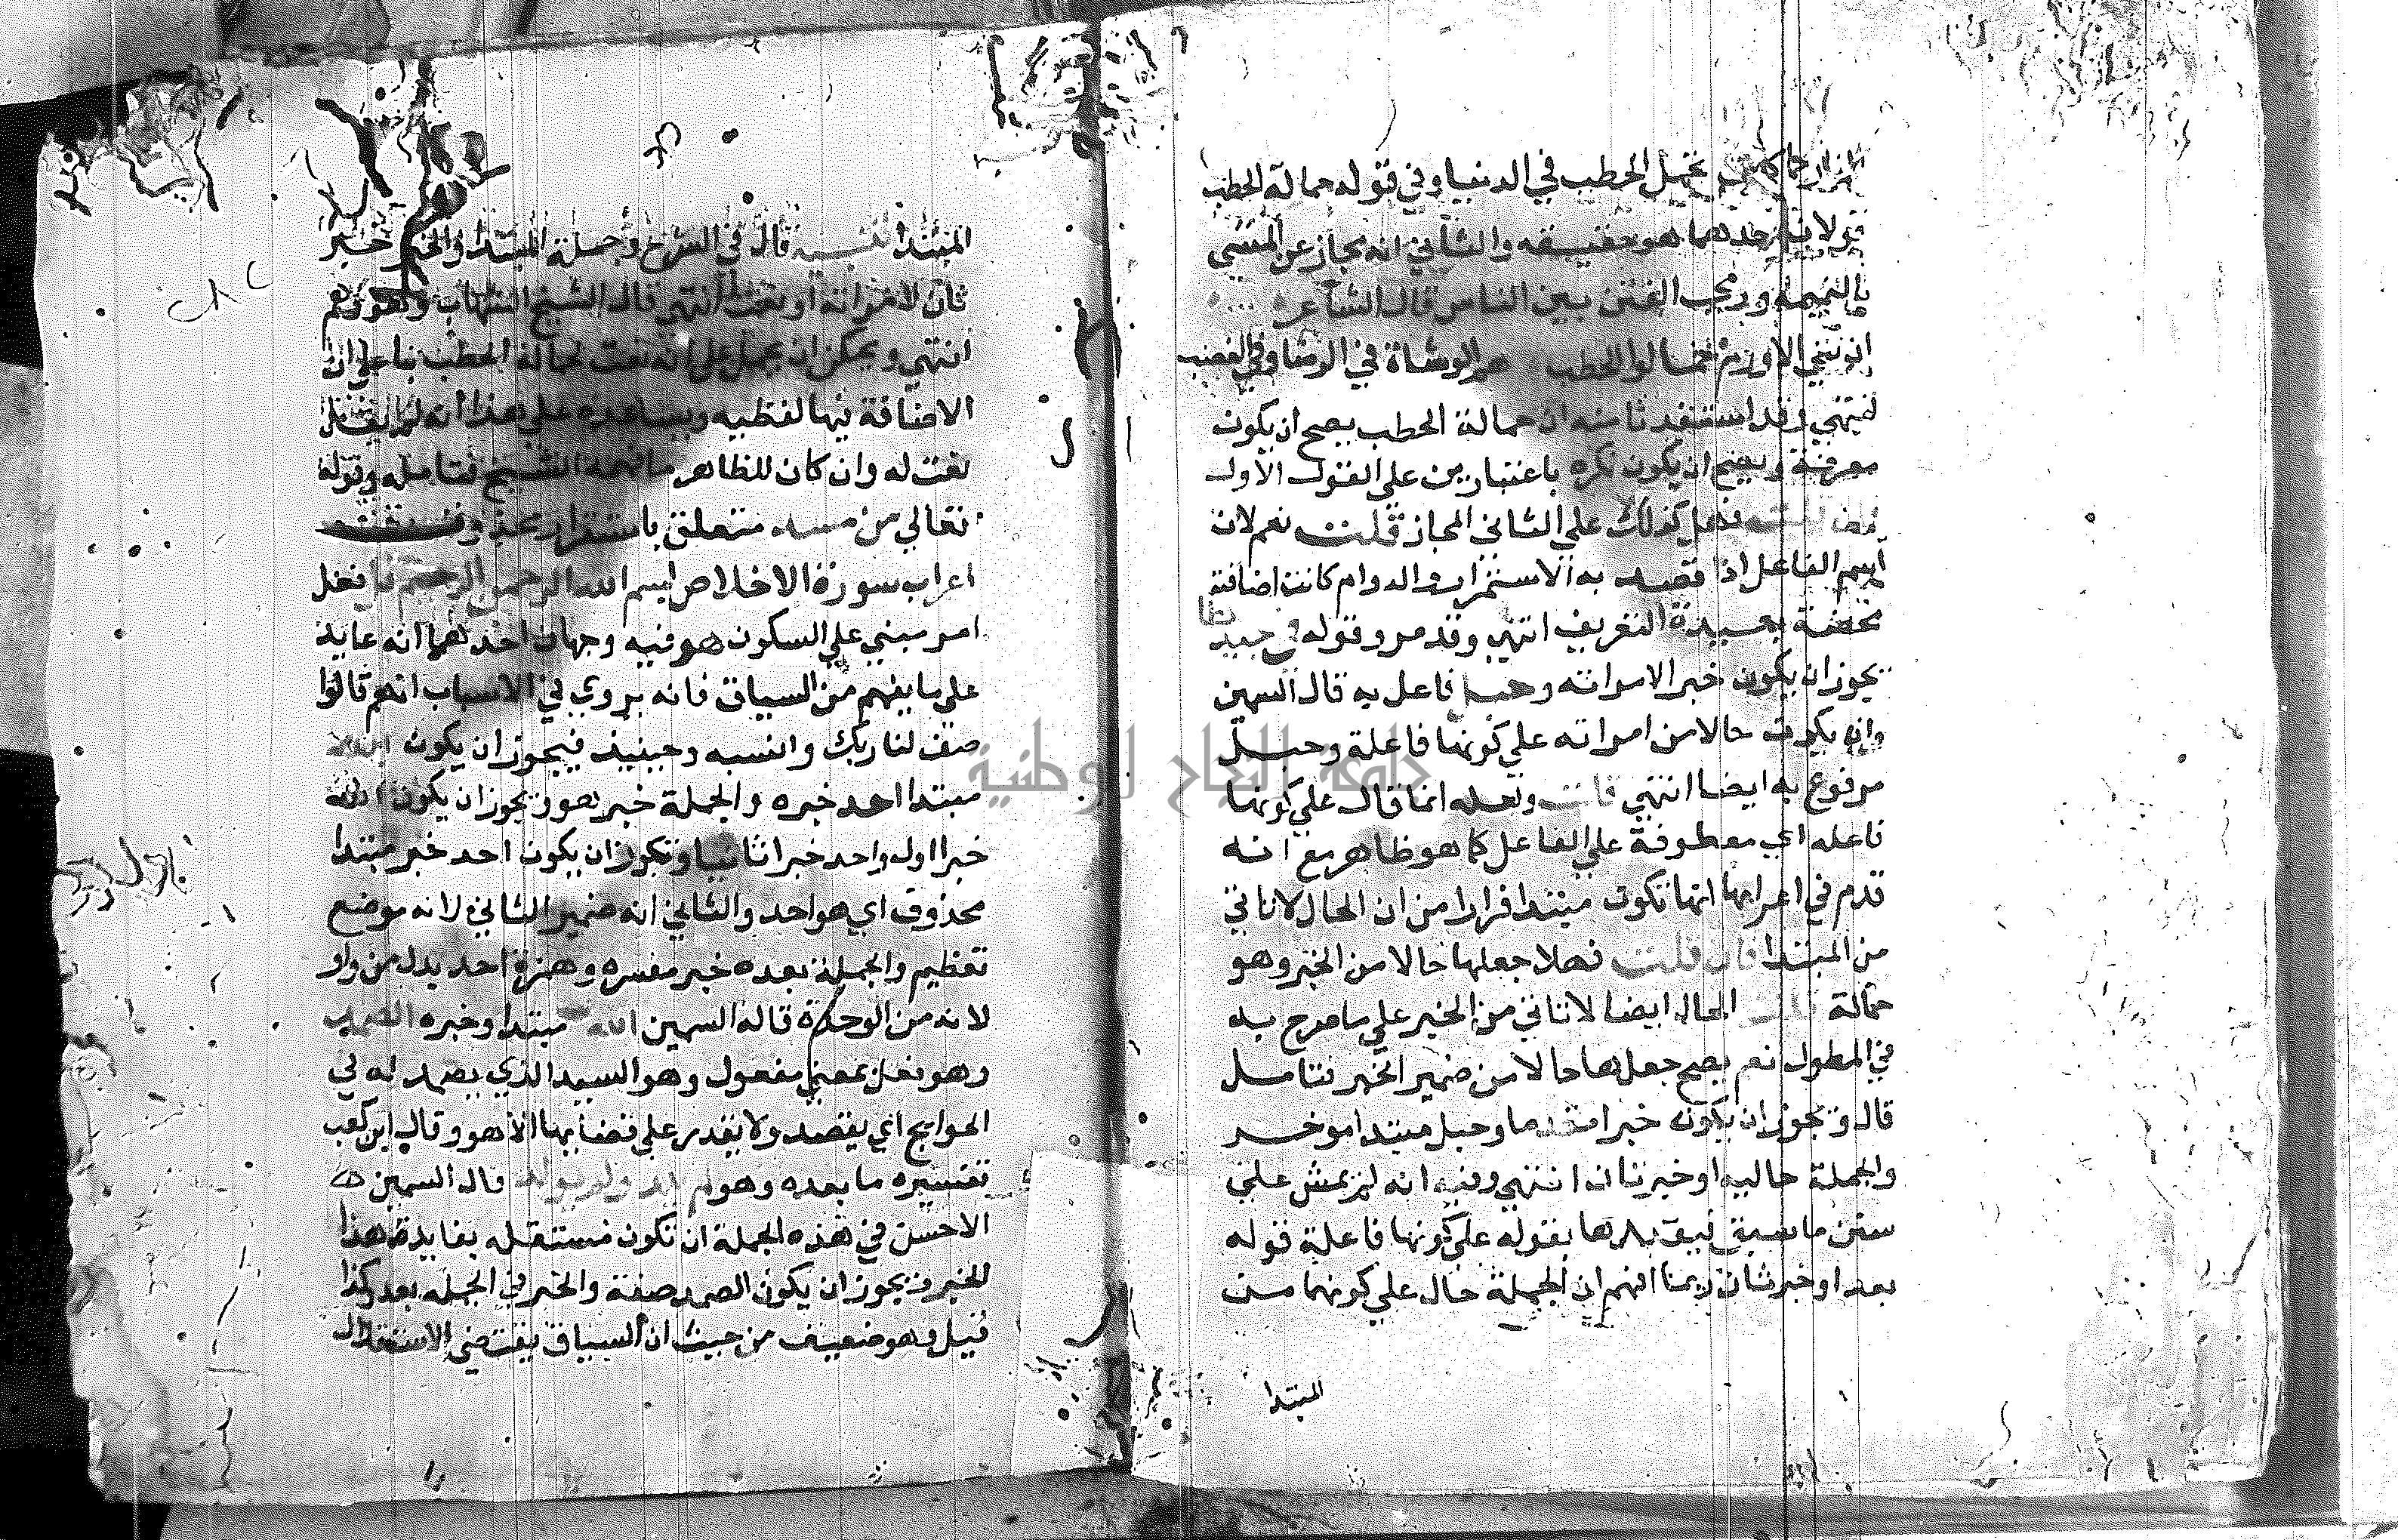 تحمل الحطب في الدنيا وفي قوله حمالة الحطب
قولان احدهما هو حقيقه والثاني انه مجاز عن المشي
بالنميمه ورمي الفتن بين الناس قال الشاعر
هم الوشاة في الرضا وفي الغضب
انتهي وقد استفيد ثامنه ان حمالة الحطب يصح ان يكون
معرفة ويصح ان يكون نكره باعتبارين على القول الاول
فهل كذلك على الثاني المجاز قلت نعم لان
اسم الفاعل اذا قصد به الاستمرار والدوام كانت اضافته
محضة مفيدة التعريف انتهي وقد مر وقوله في جيدها
يجوز ان يكون خبر الامراته وحبل فاعل به قال السمين
وان يكون حالا من امراته علي كونها فاعلة وحبل
مرفوع به ايضا انتهي قلت ولعله انما قال علي كونها
فاعله اي معطوفة علي الفاعل كما هو ظاهر مع انه
قدم في اعرابها انها تكون مبتدا فرارا من ان الحال لا تاتي
من المبتدا فان قلت فهلا جعلها حالا من الخبر وهو
حمالة قلت الحال ايضا لا تاتي من الخبر علي ما صرح به
في المطول نعم يصح جعلها حالا من ضمير الخبر فتامل
قال ويجوز ان يكون خبرا مقدما وحبل مبتدا موخر
والجملة حاليه او خبر ثان انتهي وفيه انه لم يمش علي
سنن ما سبق بقوله علي كونها فاعلة قوله
بعد او خبر ثان ربما افهم ان الجملة حال علي كونهما من
المبتدا
المبتدا قال في الشرح وجملة المبتدا والخبر خبر
ثان لامراته او نعت انتهي قال الشيخ الشهاب وهو وهم
انتهي ويمكن ان يحمل علي انه نعت لحمالة الحطب بنا علي ان
الاضافة فيها لفظيه ويساعده علي هذا انه لم يقل
نعت له وان كان الظاهر ما فهمه الشيخ فتامله وقوله
تعالي من مسد متعلق باستقرار محذوف
اعراب سورة الاخلاص بسم الله الرحمن الرحيم قل فعل
امر مبني علي السكون هو فيه وجهان احدهما انه عايد
علي ما يفهم من السياق فانه يروي في الاسباب انهم قالوا
صف لنا ربك وانسبه وحينيذ فيجوز ان يكون الله
مبتدا احد خبره والجملة خبر هو ويجوز ان يكون الله
خبرا اول واحد خبرا ثانيا ويجوز ان يكون احد خبر مبتدا
محذوف اي هو احد والثاني انه ضمير الشاني لانه موضع
تعظيم والجملة بعده خبر مفسره وهمزة احد بدل من واو
لانه من الوحدة قاله السمين الله مبتدا وخبره الصمد
وهو فعل بمعني مفعول وهو السيد الذي يصمد له في
الحوايج اي يقصد ولا يقدر علي قضايها الا هو وقال ابن كعب
تفسيره ما بعده وهو لم يلد ولم يولد قال السمين
الاحسن في هذه الجملة ان تكون مستقله بفايدة هذا
الخبر ويجوز ان يكون الصمد صفة والخبر في الجمله بعد كذا
قيل وهو ضعيف من حيث ان السياق يقتضي الاستقلال
جامعة النجاح الوطنية